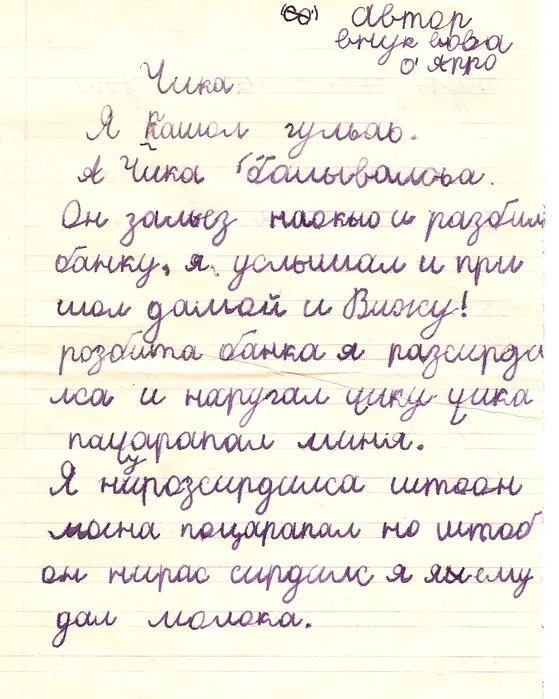 автор
внук вова
о' Ярро
Чика
Я пашол гульаь.
А Чика балывалсьа.
Он зальез наокно и разбил
банку, я услышал и при
шол дамой и Вижу!
розбита банка я разсирди
лса и наругал чику чика
пацарапал миня.
Я нирозсирдилса штоон
мена поцарапал но штоб
он нирас сирдилс я ему
дал молока.